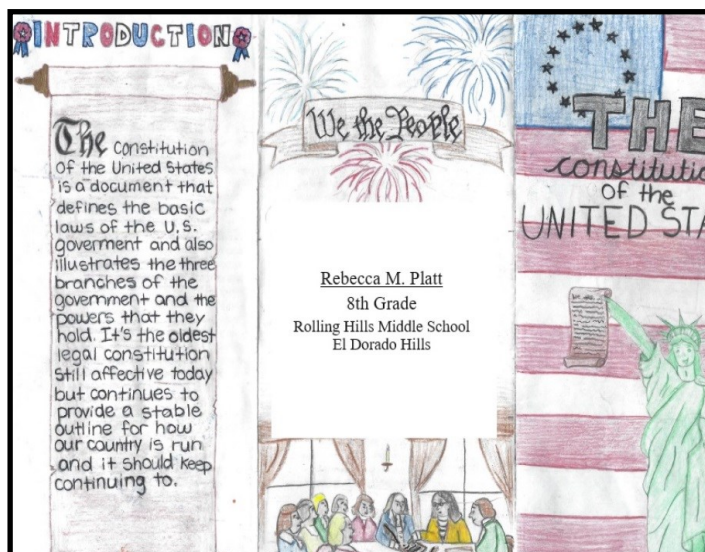 INTRODUCTION
The constitution
of the United States
is a document that
defines the basic
laws of the U.S.
goverment and also
illustrates the three
branches of the
government and the
powers that they
hold. It's the oldest
legal constitution
still affective today
but continues to
provide a stable
outline for how
our country is run
and it should keep
continuing to.
We the People
Rebecca M. Platt
8th Grade
Rolling Hills Middle School
El Dorado Hills
THE
constitutio
of the
UNITED STA